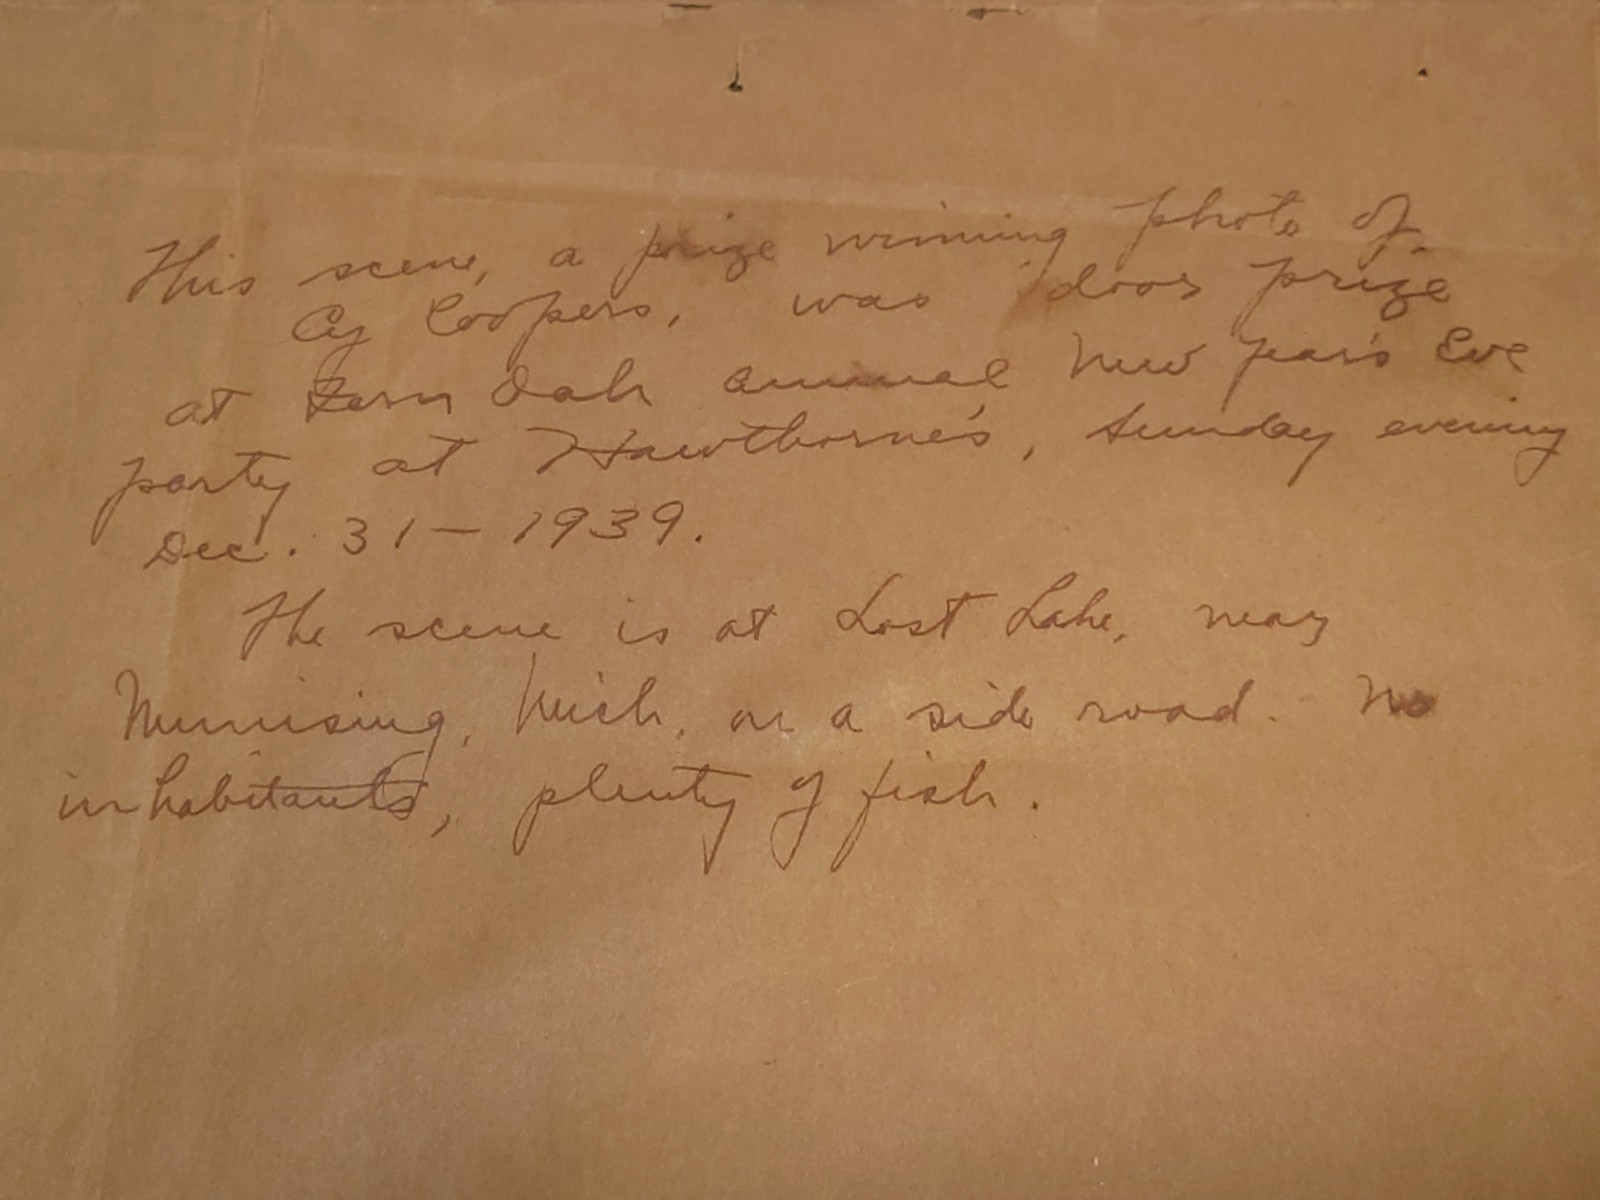 This scene, a prize winning photo of
Cy Coopers, was door prize
at Fern Oak annual New Year's Eve
party at Hawthorne's, Sunday evening
Dec. 31 - 1939.
The scene is at Lost Lake, near
Munising, Mich, on a side road. No
inhabitants, plenty of fish.